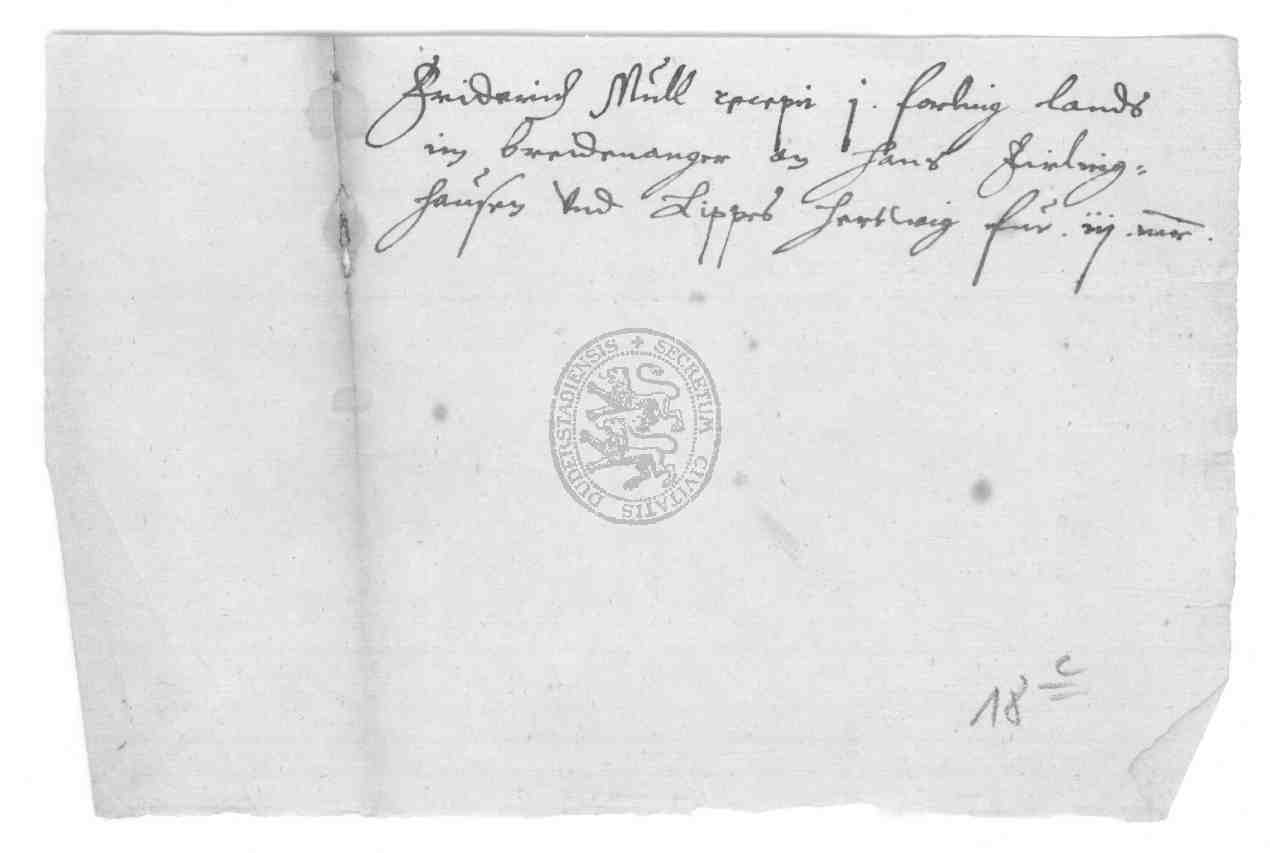 Friderich Mull recepit j. forling lands
im breidenanger an Hans
hausen vnd Lippes Hertwig fur. iij. mr.
SECRETUM CIVITATIS DUDERSTADIENSIS
18 c